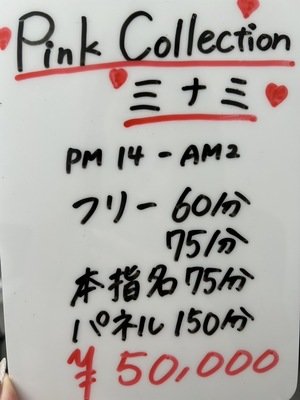 Pink Collection
ミナミ
PM 14 - AM2
フリー 60分
75分
本指名 75分
パネル 150分
¥50,000